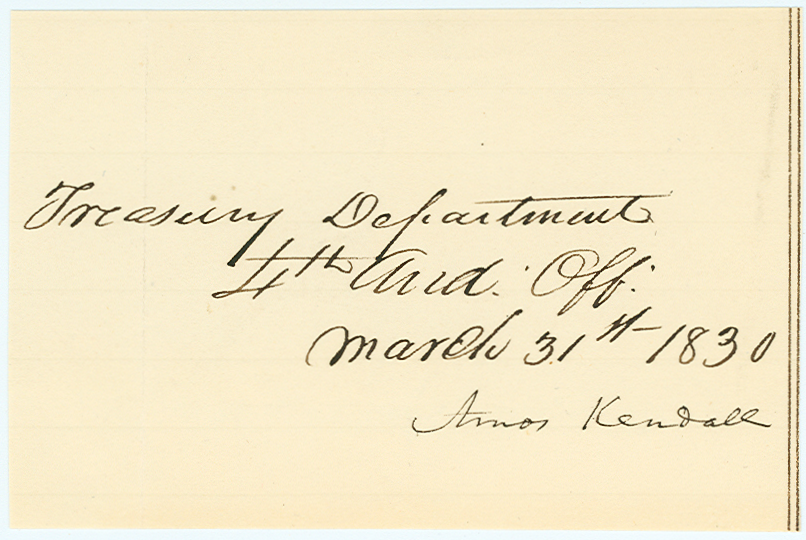 Treasury Department
4th Aud. Off.
March 31st 1830
Amos Kendall